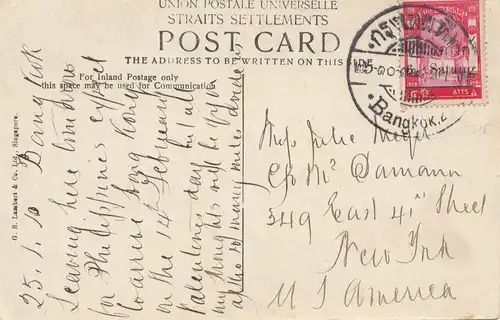 UNION POSTALE UNIVERSELLE
STRAITS SETTLEMENTS
POST CARD
THE ADDRESS TO BE WRITTEN ON THIS SIDE
For Inland Postage only
this space may be used for Communication.
G. R. Lambert & Co., Ltd., Singapore.
25.1.10 Bangkok
Leaving here tomorrow
for Philippines expect
to arrive Hong Kong
on the 14 February
Valentines day but all
my thoughts will be of you
altho so many miles divide us
Satang
ATTS
Bangkok.2
Miss Julie
C/o Mc Samann
349 East 41st Street
New York
U S America